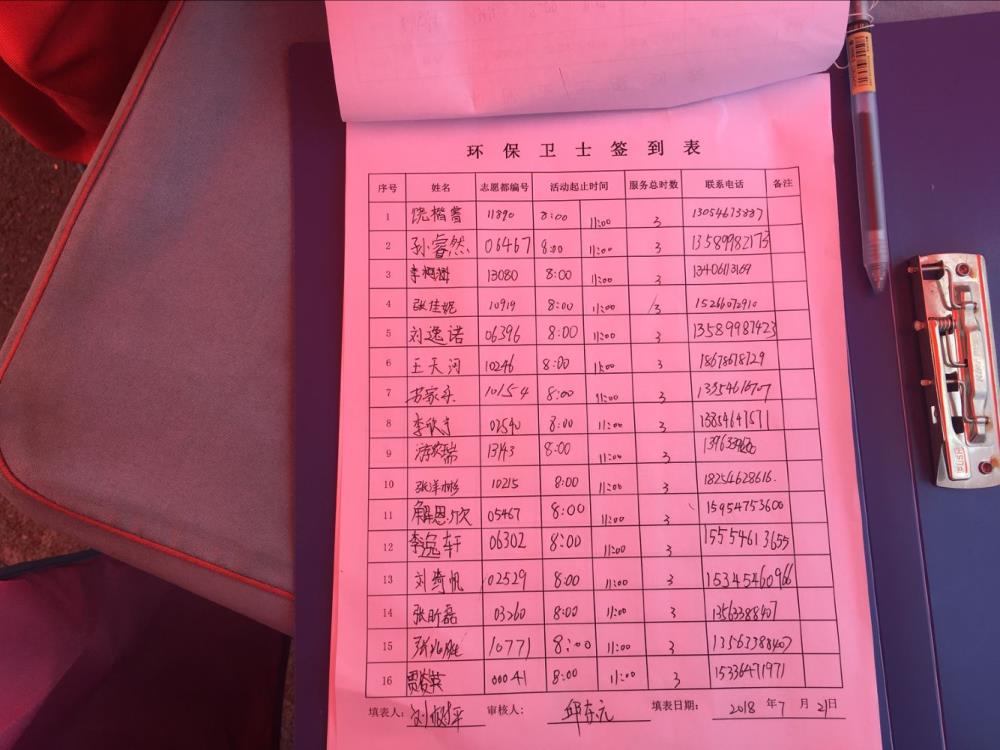 环保卫士签到表
序号 姓名 志愿都编号 活动起止时间 服务总时数 联系电话 备注
1 饶楷蓄 11890 8:00 11:00 3 13054673887
2 孙睿然 06467 8:00 11:00 3 13589982173
3 13080 8:00 11:00 3 13406113169
4 张佳妮 10919 8:00 11:00 3 15266072910
5 刘逸诺 06396 8:00 11:00 3 13589987423
6 王天河 10246 8:00 11:00 3 18678678729
7 10154 8:00 11:00 3 13354616707
8 02540 8:00 11:00 3 13854641571
9 13143 8:00 11:00 3
10 张洋彬 10215 8:00 11:00 3 18254628616.
11 解恩欣 05467 8:00 11:00 3 15954753600
12 李逸轩 06302 8:00 11:00 3 15554613655
13 刘绮帆 02529 8:00 11:00 3 15345460966
14 张昕磊 03260 8:00 11:00 3 13563388407
15 10771 8:00 11:00 3 13563388407
16 00041 8:00 11:00 3 15336471971
填表人: 审核人: 邱东元 填表日期: 2018 年 7 月 21 日
PUSH